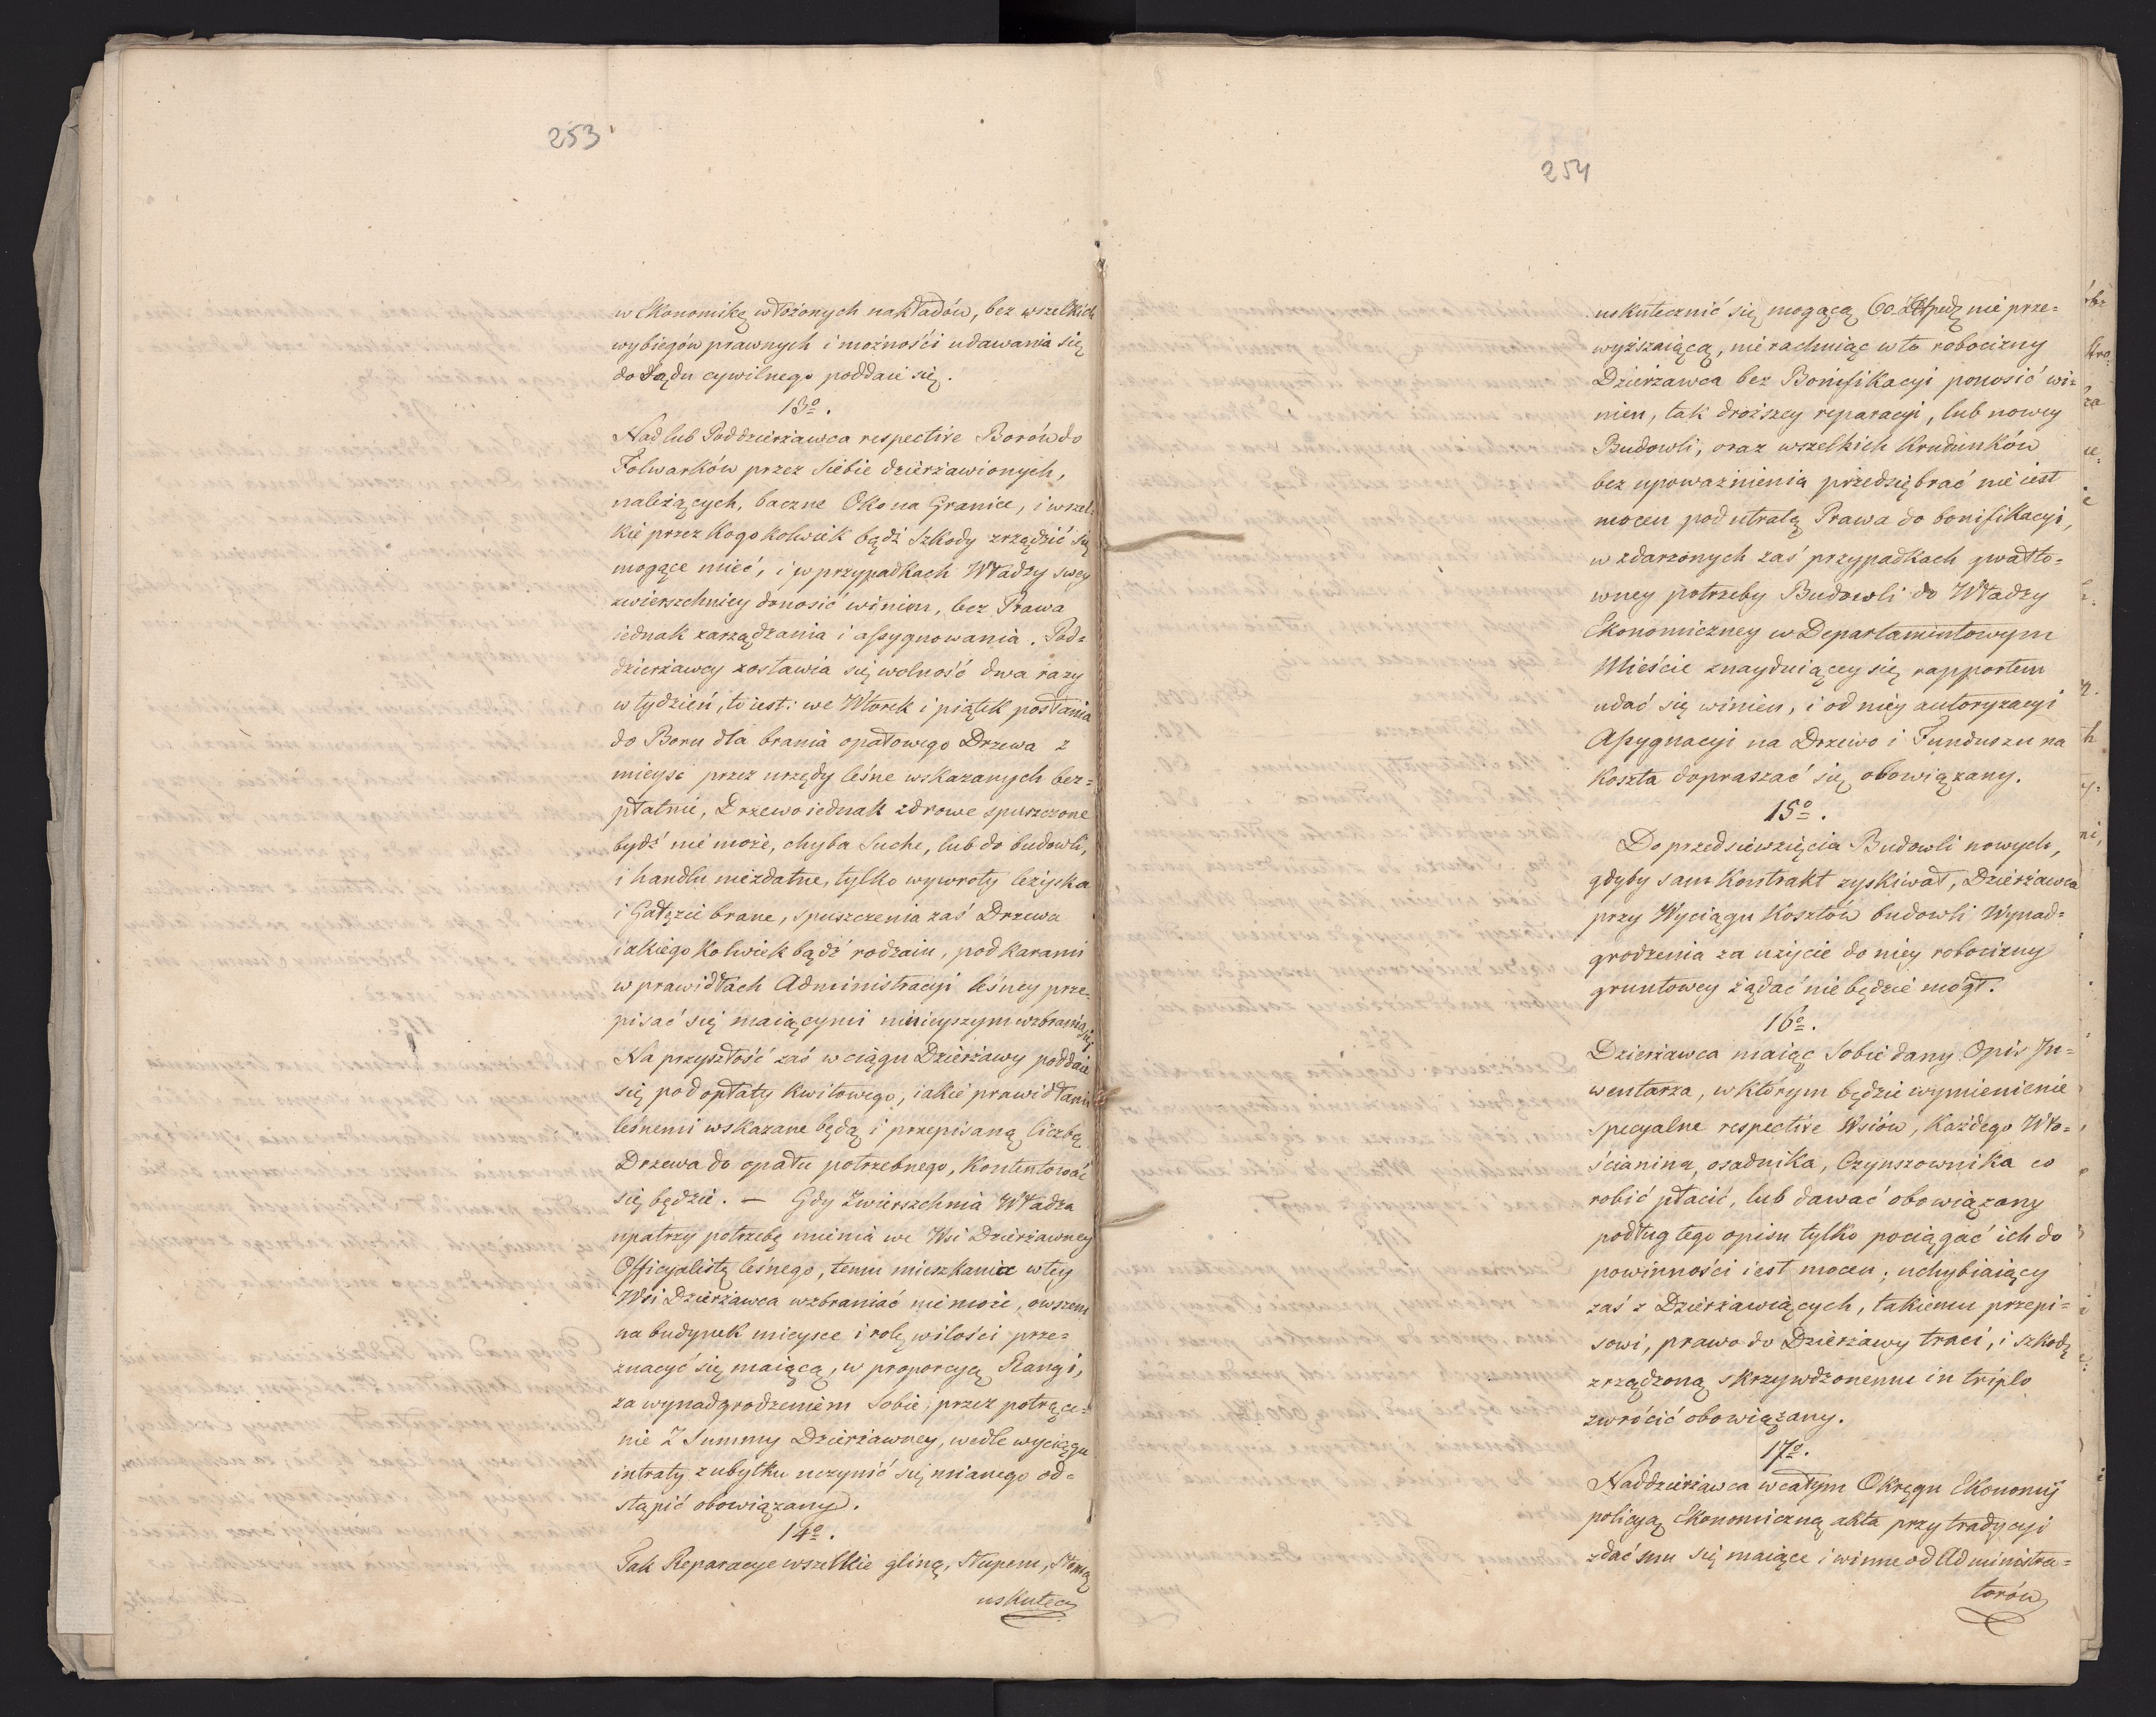 253
w Ekonomikę włożonych nakładów, bez wszelkich
wybiegów prawnych i możności udawania się
do Sądu cywilnego poddaie się.
13º.
Nad lub Poddzierżawca respective Borów do
Folwarków przez siebie dzierżawionych,
należących, baczne Oko na Granice, i wszel=
kie przez kogokolwiek bądź szkody zrządzić się
mogące mieć, i w przypadkach Władzy swey
zwierzchniey donosić winien, bez Prawa
iednak zarządzania i assygnowania. Pod=
dzierżawcy zostawia się wolność dwa razy
w tydzień, to iest: we Wtorek i piątek posłania
do Boru dla brania opałowego Drzewa z
mieysc przez urzędy leśne wskazanych bez=
płatnie, Drzewo iednak zdrowe spuszczone
bydź nie może, chyba Suche, lub do budowli,
i handlu niezdatne, tylko wywroty leżyska
i Gałęzie brane, spuszczenia zaś Drzewa
iakiego kolwiek bądź rodzaiu, pod karami
w prawidłach Administracyi leśney prze=
pisać się maiącymi ninieyszym wzbrania się
Na przyszłość zaś w ciągu Dzierżawy poddaie
się pod opłaty kwitowego, iakie prawidłami
leśnemi wskazane będą i przepisaną liczbą
Drzewa do opału potrzebnego, kontentować
się będzie. — Gdy Zwierzchnia Władza
upatrzy potrzebę mienia we Wsi Dzierżawney
Officyalistę leśnego, temu mieszkania w tey
Wsi Dzierżawca wzbraniać nie może, owszem
na budynek mieysce i rolę wilości prze=
znaczyć się maiącą, w proporcyą Rangi,
za wynadgrodzeniem Sobie, przez potrące=
nie z Summy Dzierżawney, wedle wyciągu
intraty z ubytku uczynić się mianego od=
stąpić obowiązany.
14º.
Tak Reparacye wszelkie gliną, słupem, słomą
uskutecz
254
uskutecznić się mogącą 60. nie prze=
wyższaiącą, nie rachuiąc w to robocizny
Dzierżawca bez Bonifikacyi ponosić wi=
nien, tak droższey reparacyi, lub nowey
Budowli, oraz wszelkich Krudunków
bez upoważnienia przedsiębrać nie iest
mocen pod utratą Prawa do bonifikacyi,
w zdarzonych zaś przypadkach gwałto=
wney potrzeby Budowli do Władzy
Ekonomiczney w Departamentowym
Mieście znayduiącey się rapportem
udać się winien, i od niey autoryzacyi
Assygnacyi na Drzewo i Funduszu na
Koszta dopraszać się obowiązany.
15º.
Do przedsiewzięcia Budowli nowych,
gdyby sam Kontrakt zyskiwał, Dzierżawca
przy Wyciągu Kosztów budowli Wynad=
grodzenia za użycie do niey robocizny
gruntowey żądać nie będzie mógł.
16º.
Dzierżawca maiąc Sobie dany Opis In=
wentarza, w którym będzie wymienienie
specyalne respective Wsiów, każdego Wło=
ścianina, osadnika, Czynszownika co
robić płacić, lub dawać obowiązany
podług tego opisu tylko pociągać ich do
powinności iest mocen; uchybiaiący
zaś z Dzierżawiących, takiemu przepi=
sowi, prawo do Dzierżawy traci, i szkodę
zrządzoną skrzywdzonemu in triplo
zwrócić obowiązany.
17º.
Naddzierżawca w całym Okręgu Ekonomij
policyą Ekonomiczną akta przy tradycyi
zdać mu się maiące i winne od Administra=
torów